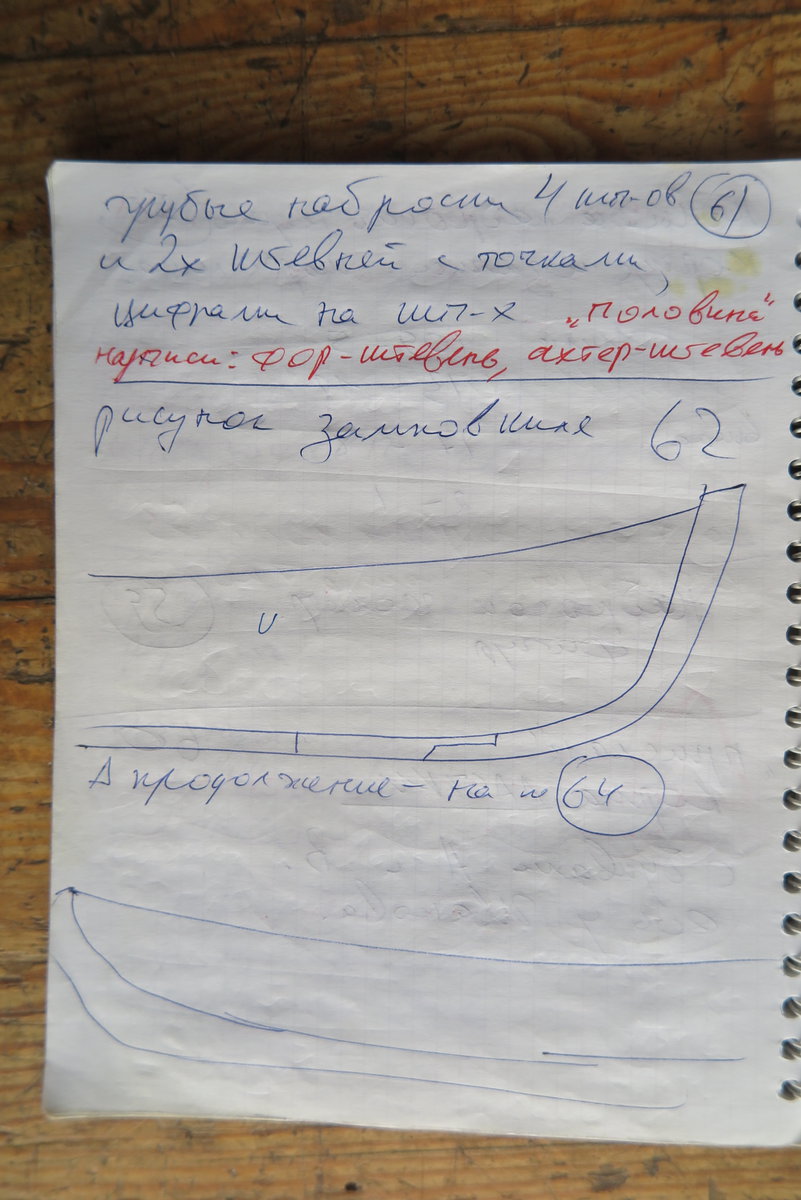 грубые наброски 4 шп-ов 61
и 2х штевней с точками,
цифрами на шп-х "половина"
надписи: фор-штевень, ахтер-штевень
рисунок замков киля 62
V
А продолжение - на 64